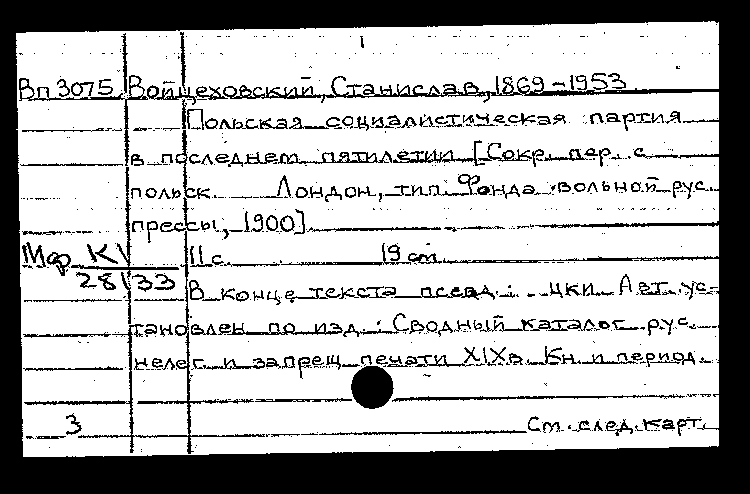 Вп3075 Войцеховский, Станислав, 1869-1953
Польская социалистическая партия
в последнем пятилетии [Сокр. пер. с
польск. Лондон, тип. Фонда вольной рус.
прессы, 1900]
11 с. 19 см
Мф К\
28\33
В конце текста псевд.: цки. Авт. ус-
тановлен по изд.: Сводный каталог рус.
нелег. и запрещ. печати XIXв. Кн. и период.
3 См. след. карт.